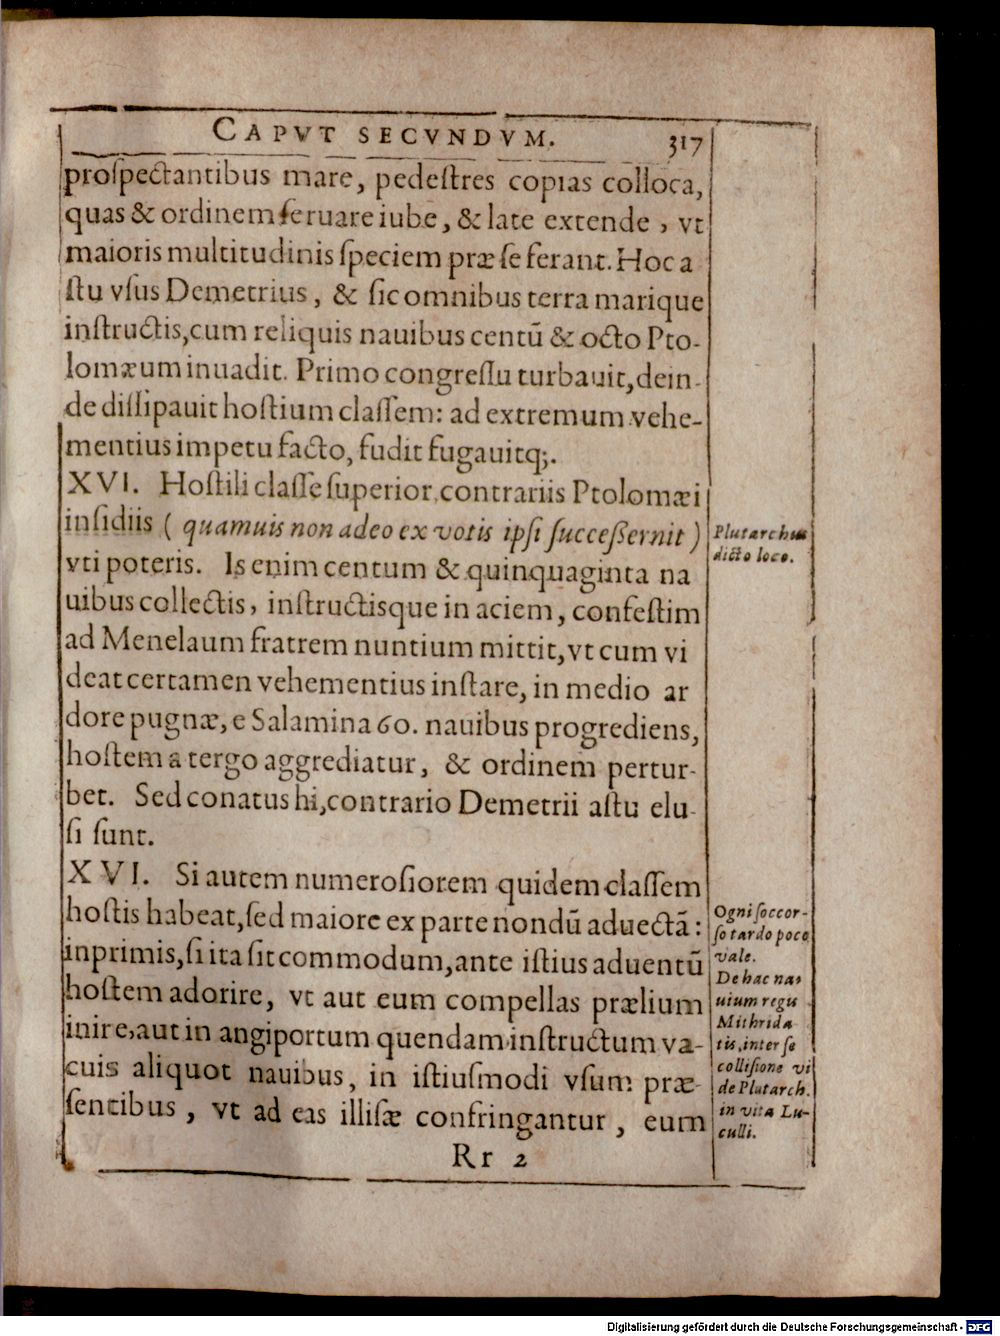 CAPVT SECVNDVM. 317
proſpectantibus mare, pedeſtres copias colloca,
quas & ordinem ſeruare iube, & late extende, vt
maioris multitudinis ſpeciem præ ſe ferant. Hoc a
ſtu vſus Demetrius, & ſic omnibus terra marique
inſtructis, cum reliquis nauibus centū & octo Pto-
lomæum inuadit. Primo congreſſu turbauit, dein-
de diſſipauit hoſtium claſſem: ad extremum vehe-
mentius impetu facto, fudit fugauitq;.
XVI. Hoſtili claſſe ſuperior, contrariis Ptolomæi
inſidiis ( quamuis non adeo ex votis ipſi ſucceßernit )
vti poteris. Is enim centum & quinquaginta na
uibus collectis, inſtructisque in aciem, confeſtim
ad Menelaum fratrem nuntium mittit, vt cum vi
deat certamen vehementius inſtare, in medio ar
dore pugnæ, e Salamina 60. nauibus progrediens,
hoſtem a tergo aggrediatur, & ordinem pertur-
bet. Sed conatus hi, contrario Demetrii aſtu elu-
ſi ſunt.
XVI. Si autem numeroſiorem quidem claſſem
hoſtis habeat, ſed maiore ex parte nondū aduectā:
inprimis, ſi ita ſit commodum, ante iſtius aduentū
hoſtem adorire, vt aut eum compellas prælium
inire, aut in angiportum quendam inſtructum va-
cuis aliquot nauibus, in iſtiuſmodi vſum præ-
ſentibus, vt ad eas illiſæ confringantur, eum
Rr 2
Plutarchus
dicto loco.
Ogni ſoccor-
ſo tardo poco
vale.
De hac na-
uium regis
Mithrida
tis, inter ſe
colliſione vi
de Plutarch.
in vita Lu-
culli.
Digitalisierung gefördert durch die Deutsche Forschungsgemeinschaft - DFG